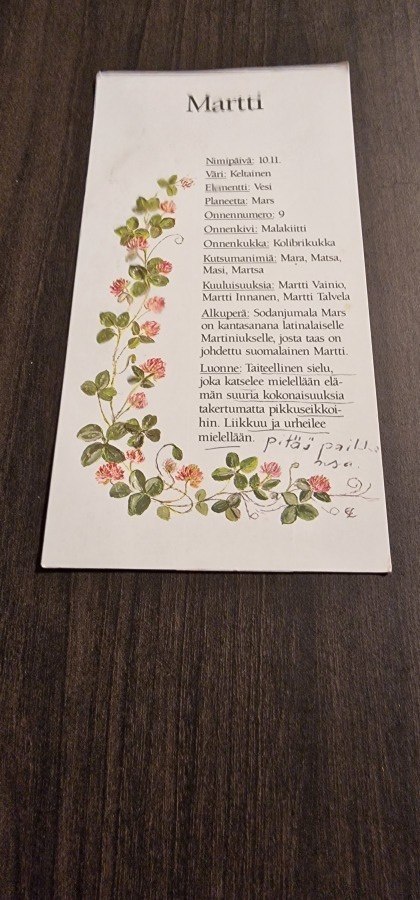 Martti
Nimipäivä: 10.11.
Väri: Keltainen
Elementti: Vesi
Planeetta: Mars
Onnennumero: 9
Onnenkivi: Malakiitti
Onnenkukka: Kolibrikukka
Kutsumanimiä: Mara, Matsa,
Masi, Martsa
Kuuluisuuksia: Martti Vainio,
Martti Innanen, Martti Talvela
Alkuperä: Sodanjumala Mars
on kantasanana latinalaiselle
Martiniukselle, josta taas on
johdettu suomalainen Martti.
Luonne: Taiteellinen sielu,
joka katselee mielellään elä-
män suuria kokonaisuuksia
takertumatta pikkuseikkoi-
hin. Liikkuu ja urheilee
mielellään. pitää